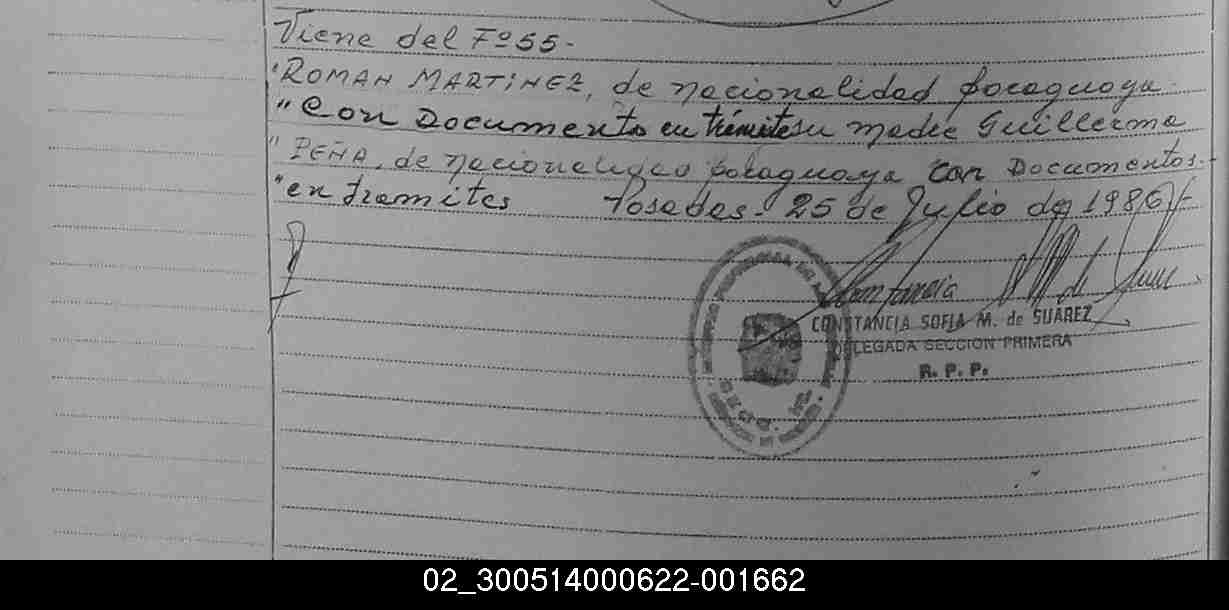 Viene del Fº 55-
"ROMAN MARTINEZ, de nacionalidad paraguaya-
"Con Documento en trámite su madre Guillerma
"PEÑA, de nacionalidad paraguaya con Documentos-
"en tramites Posadas- 25 de Julio de 1986/-
Constancia M de Suarez
CONSTANCIA SOFIA M. de SUAREZ
DELEGADA SECCION PRIMERA
R. P. P.
02_300514000622-001662